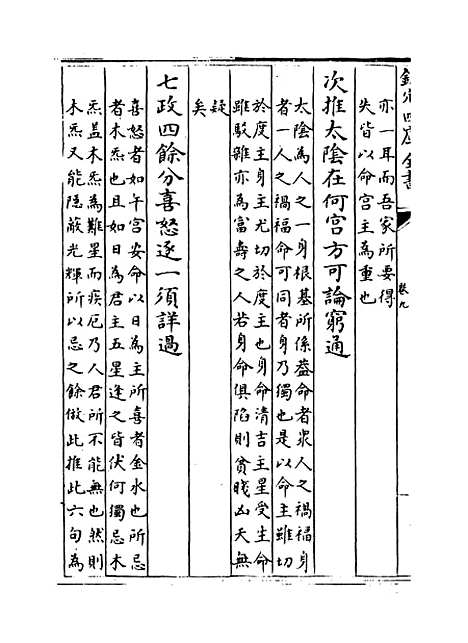 欽定四庫全書
卷九
亦一耳而吾家所要得
失皆以命宫主為重也
次推太陰在何宫方可論窮通
太陰為人之一身根基所係葢命者衆人之禍福身
者一人之禍福命可同者身乃獨也是以命主雖切
於度主身主尤切於度主也身命清吉主星受生命
雖駁雜亦為富壽之人若身命俱陷則貧賤凶夭無
疑
矣
七政四餘分喜怒逐一須詳過
喜怒者如午宫安命以日為主所喜者金水也所忌
者木炁也且如日為君主五星逢之皆伏何獨忌木
炁葢木炁為難星而疾厄乃人君所不能無也然則
木炁又能隠蔽光輝所以忌之餘倣此推此六句為